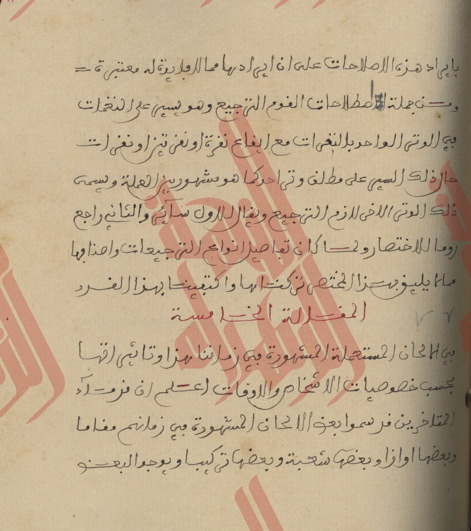 بايراد هذه الاصلاحات على ان ايرادها مما لا بد له معتبرة
ومن جملة اصطلاحات القوم الترجيع وهو يسير على النغمات
في الوتر الواحد بالنقرات مع ايقاع نقرة او نقرتين او نقرات
حال ذلك السير على مطلق وتر احدهما هو مشهور بين العملة ويسمى
ذلك الوتر الاخر لازم الترجيع ويقال للاول سائر والثاني راجع
روما للاختصار ولما كان تفاصيل انواع الترجيعات واصنافها
مما لا يليق بهذا المختصر تركناها واكتفينا بهذا الفرد
المقالة الخامسة
في الالحان المستعملة المشهورة في زماننا هذا وتاثيراتها
بحسب خصوصيات الاشخاص والاوقات اعلم ان قدماء
المتاخرين قد سموا بعض الالحان المشهورة في زمانهم مقاما
وبعضها اوازا وبعضها شعبة وبعضها تركيبا ويوجد البعض